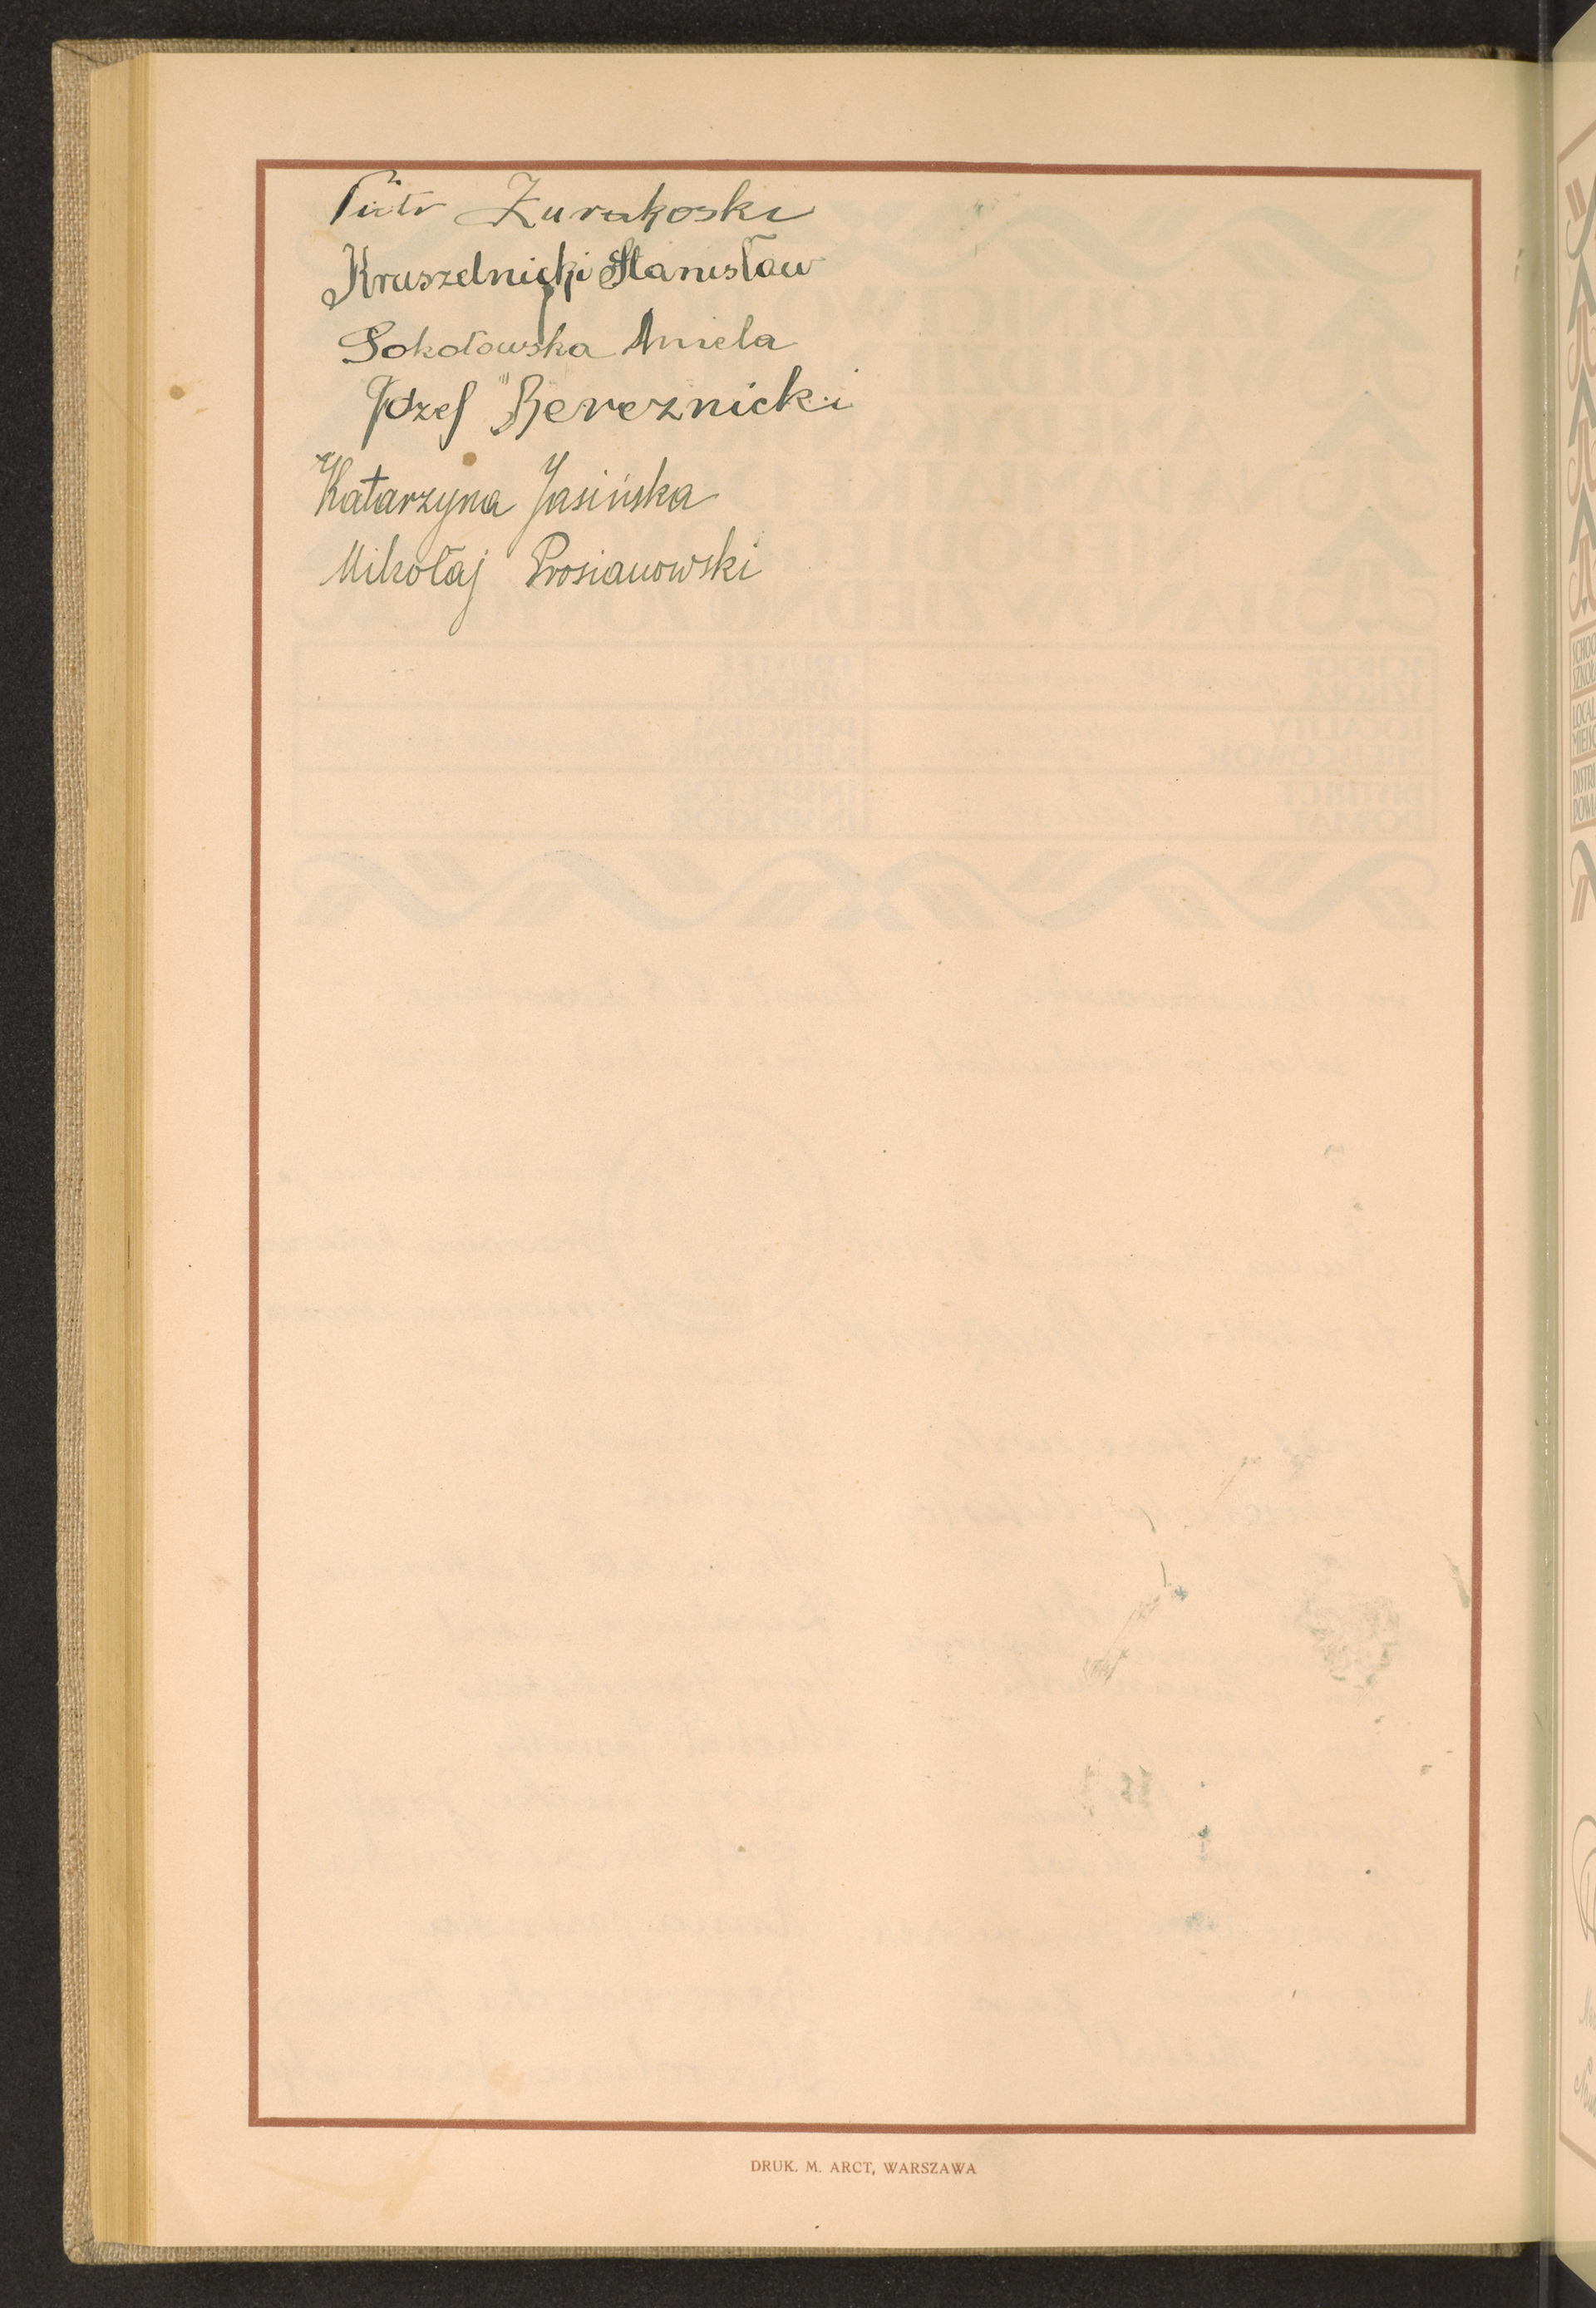 Piotr Żurakoski
Kruszelnicki Stanisław
Sokołowska Aniela
Józef Bereznicki
Katarzyna Jasińska
Mikołaj Prosianowski
DRUK. M. ARCT, WARSZAWA